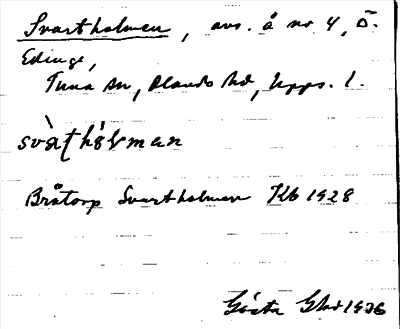 Svartholmen, avs. å nr 4, Ö.
Edinge,
Tuna sn, Olands hd, Upps. l.
svàʈhó̀ɽman
Bråtorp Svartholmen Kb 1928
Gösta 1936